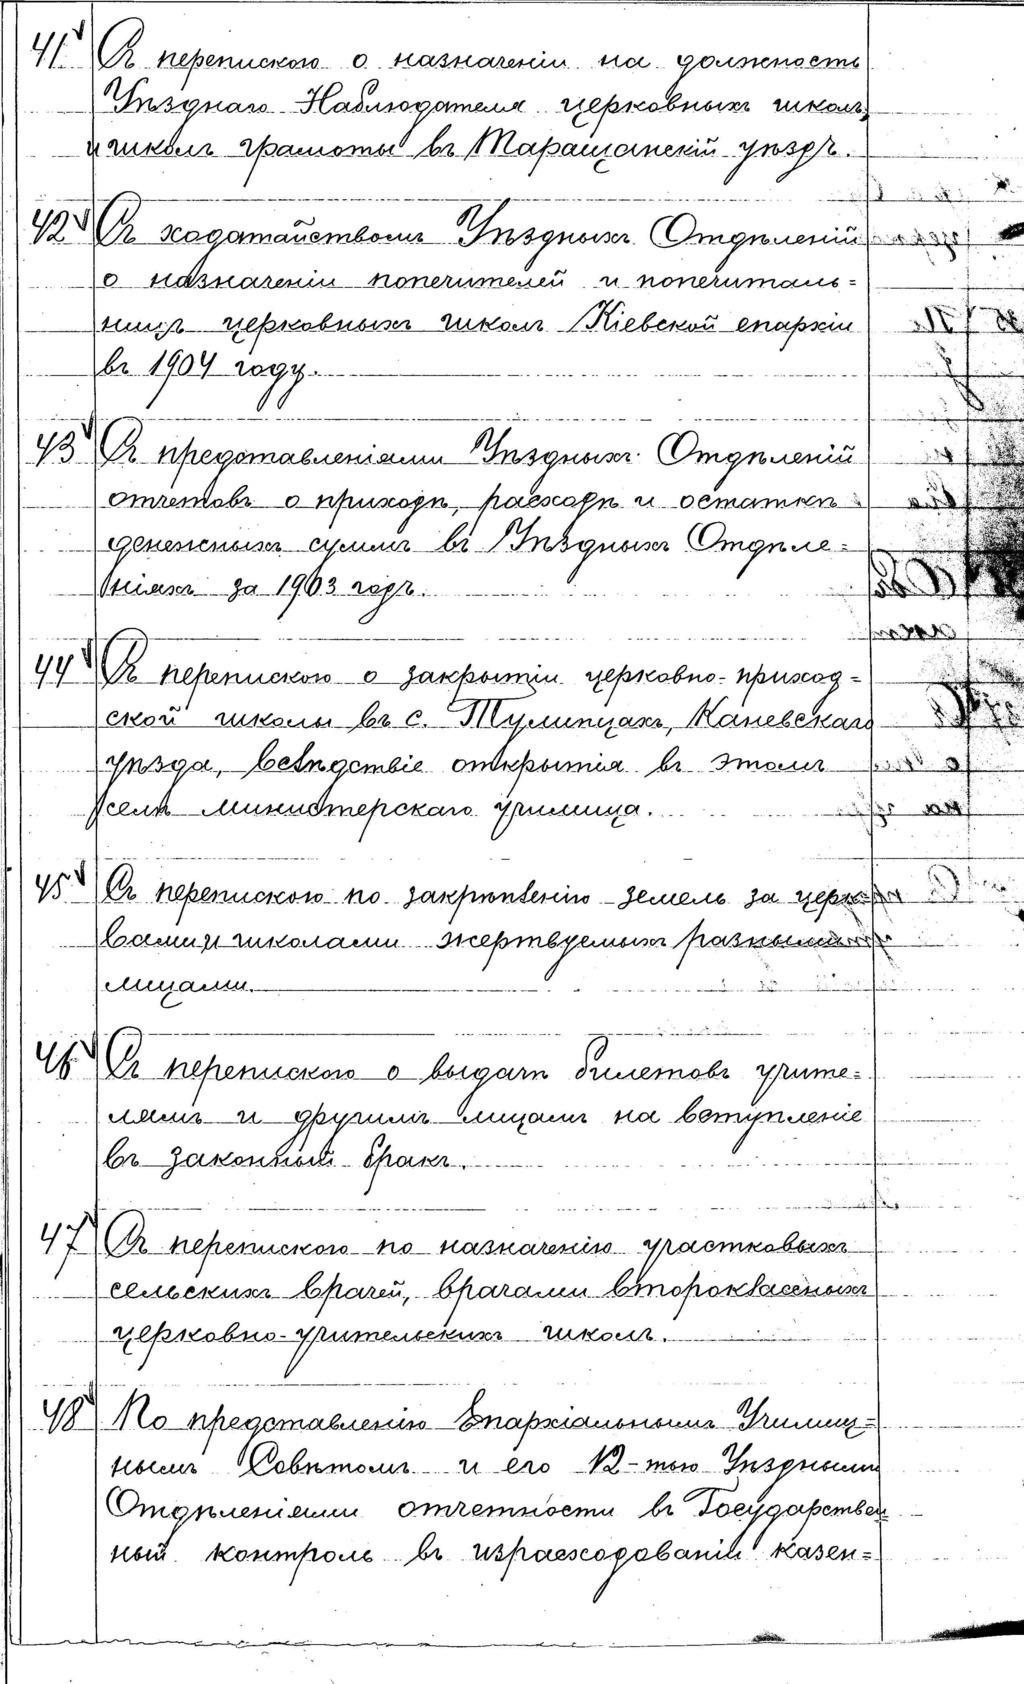 41. Съ перепискою о назначеніи на должность
Уѣзднаго Наблюдателя церковныхъ школъ
и школъ грамоты въ Таращанскій уѣздъ.
42 Съ ходатайствомъ Уѣздныхъ Отдѣленій
о назначеніи попечителей и попечитель=
ницъ церковныхъ школъ Кіевской епархіи
въ 1904 году.
43 Съ представленіями Уѣздныхъ Отдѣленій
отчетовъ о приходѣ, расходѣ и остаткѣ
денежныхъ суммъ въ Уѣздныхъ Отдѣле=
ніяхъ за 1903 годъ.
44 Съ перепискою о закрытіи церковно-приход=
ской школы въ с. Тулинцахъ, Каневскаго
уѣзда, вслѣдствіе открытія въ этомъ
селѣ министерскаго училища.
45 Съ перепискою по закрѣпленію земель за церк=
вами и школами жертвуемыхъ разными
лицами.
46 Съ перепискою о выдачѣ билетовъ учите=
лямъ и другимъ лицамъ на вступленіе
въ законный бракъ.
47 Съ перепискою по назначенію участковыхъ
сельскихъ врачей, врачами второклассныхъ
церковно-учительскихъ школъ.
48 По представленію Епархіальнымъ Училищ=
нымъ Совѣтомъ и его 12-тью Уѣздными
Отдѣленіями отчетности въ Государствен
ный контроль въ израсходованіи казен=